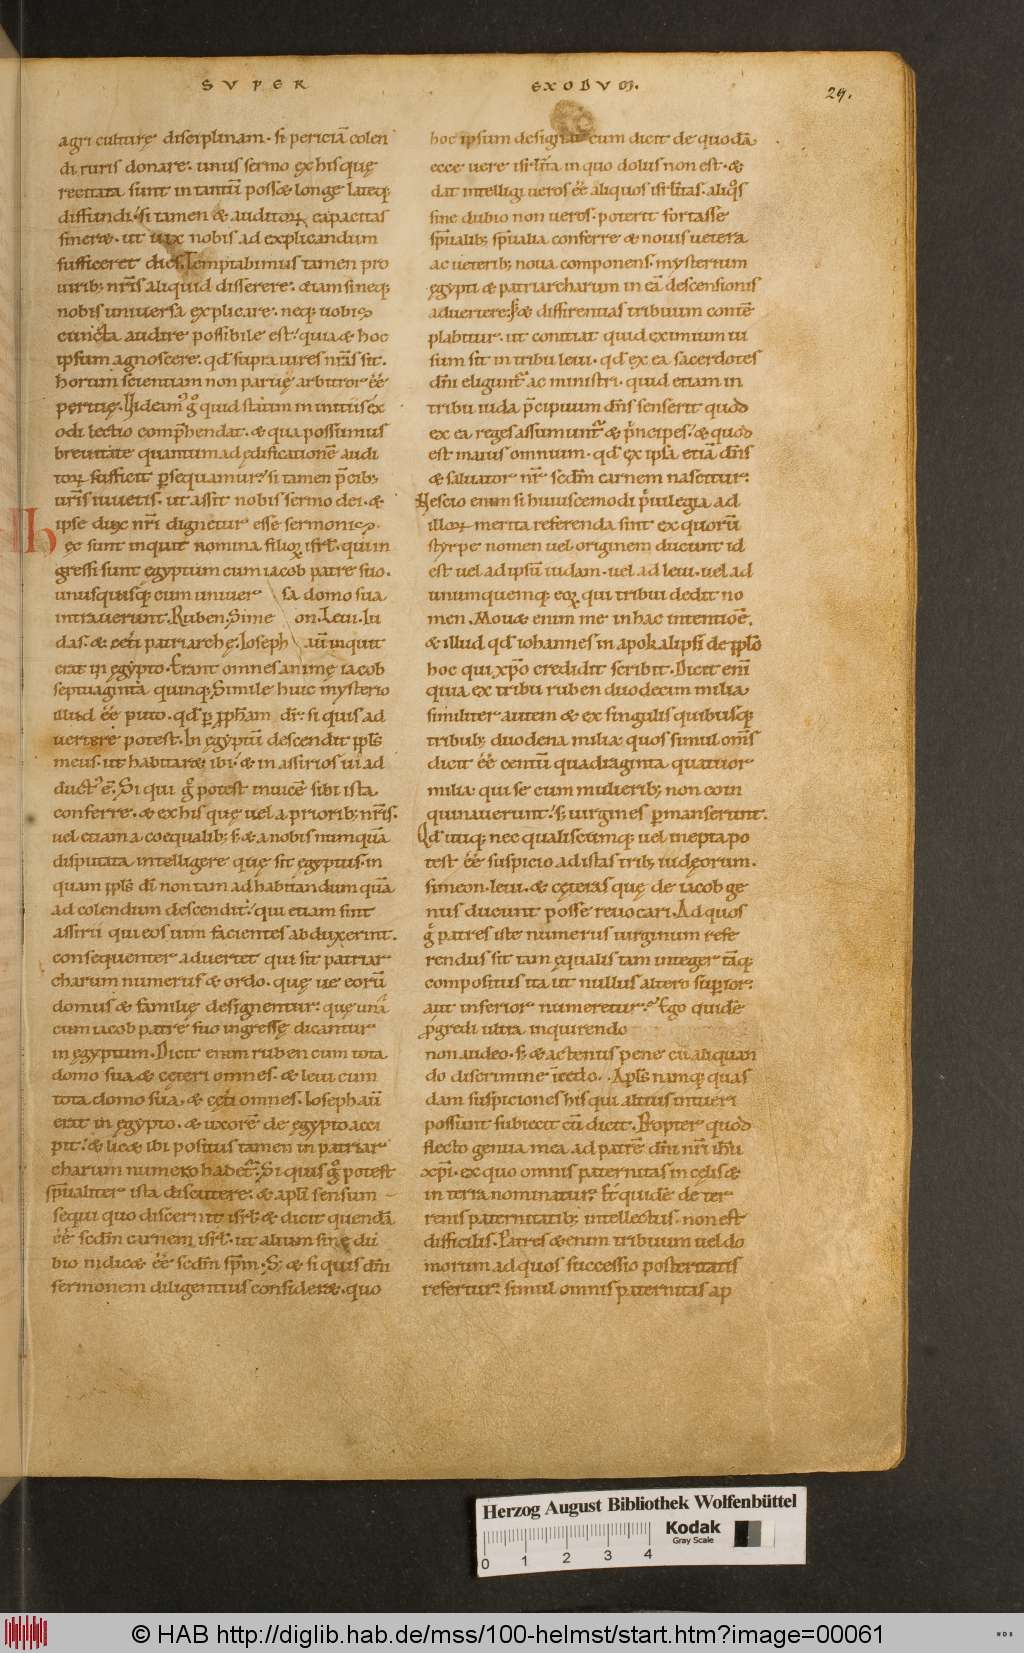 SVPER EXODVM.
29.
agri culturę disciplinam. si periciā colen
di ruris donare. unus sermo ex his quę
recitata sunt in tantū possæ longe lateq;
diffundi. si tamen & auditoꝝ capacitas
sineræ. ut uix nobis ad explicandum
sufficeret dies. Temptabimus tamen pro
uirib; nr̄is aliquid disserere. etiam si neq;
nobis uniuersa explicare. neq; uobis
cuncta audire possibile est. quia & hoc
ipsum agnoscere. qd̄ supra uires nr̄as sit.
horum scientiam non paruę arbitror eē
peritię. Uideam᾽ gͦ quid statim in initiis ex
odi lectio comp̄hendat. & qua possumus
breuitate quantum ad ędificationē audi
toꝝ sufficit ꝑsequamur. si tamen p̄cib;
ur̄is iuuetis. ut assit nobis sermo dei. &
ipse dux nr̄i dignetur esse sermonis.
Hęc sunt inquit nomina filioꝝ isrl̄. qui in
gressi sunt ęgyptum cum iacob patre suo.
unusquisq; cum uniuer sa domo sua
intrauerunt. Ruben. Sime on. Leui. Iu
das. & ceti patriarchę. Ioseph aūt inquit
erat in ęgypto. Erant omnes animę iacob
septuaginta quinq;. Simile huic mysterio
illud eē puto. qd̄ ꝑ ꝓph̄am dr̄. si quis ad
uertere potest. In ęgyptū descendit ppl̄s
meus. ut habitaræ ibi. & in assirios ui ad
duct᾽ ē. Si qui gͦ potest inuicē sibi ista
conferre. & ex his quę uel a priorib; nr̄is.
uel etiam a coequalib; s; & a nobis nunquā
disputata intelligere quę sit ęgyptus. in
quam ppl̄s dī non tam ad habitandum quā
ad colendum descendit. qui etiam sint
assirii qui eos uim facientes abduxerint.
consequenter aduertet qui sit patriar
charum numerus & ordo. quę ue eorū
domus & familię designentur. quę unā
cum iacob patre suo ingressę dicantur
in ęgyptum. Dicit enim ruben cum tota
domo sua & ceteri omnes. & leui cum
tota domo sua, & ceti omnes. Ioseph aū
erat in ęgypto. & uxorē de ęgypto acci
pit. & licæ ibi positus tamen in patriar
charum numero habet᾽. Si quis gͦ potest
sp̄ualiter ista discutere. & apl̄i sensum
sequi quo discernit isrl̄. & dicit quendā
eē scdm̄ carnem isrl̄. ut alium sine du
bio indicæ eē scdm̄ sp̄m. S; & si quis dn̄i
sermonem diligentius consideræ. quo
hoc ipsum designat cum dicit de quodā
ecce uere isrl̄ita in quo dolus non est. &
dat intelligi ueros eē aliquos isrl̄itas. aliqͦs
sine dubio non ueros. poterit fortasse
sp̄ualib; sp̄ualia conferre & nouis uetera
ac ueterib; noua componens. mysterium
ęgypti & patriarcharum in eā descensionis
aduertere. & differentias tribuum contē
plabitur. ut coniciat quid eximium ui
sum sit in tribu leui. qd̄ ex ea sacerdotes
dn̄i eligunt᾽ ac ministri. quid etiam in
tribu iuda p̄cipuum dn̄s senserit quod
ex ea reges assumunt᾽ & pͥncipes. & quod
est maius omnium. qd̄ ex ipsa etiā dn̄s
& saluator nr̄ scdm̄ carnem nascitur.
Nescio enim si huiuscemodi pͥuilegia ad
illoꝝ merita referenda sint ex quorū
styrpe nomen uel originem ducunt id
est uel ad ipsū iudam. uel ad leui. uel ad
unumquemq; eoꝝ qui tribui dedit no
men. Mouæ enim me in hac intentiōe
& illud qd̄ iohannes in apokalipsi de ppl̄o
hoc qui xp̄o credidit scribit. Dicit enī
quia ex tribu ruben duodecim milia
similiter autem & ex singulis quibusq;
tribub; duodena milia quos simul om̄s
dicit eē centū quadraginta quattuor
milia. qui se cum mulierib; non coin
quinauerunt. s; uirgines ꝑmanserunt.
Qd̄ utiq; nec qualiscumq; uel inepta po
test eē suspicio ad istas trib; iudęorum.
simeon. leui. & cęteras quę de iacob ge
nus ducunt posse reuocari. Ad quos
gͦ patres iste numerus uirginum refe
rendus sit tam ęqualis tam integer tāq;
compositus ita ut nullus altero superior
aut inferior numeretur. Ego quidē
ꝓgredi ultra inquirendo
non audeo. s; & actenus pene cū aliquan
do discrimine īcedo. Apl̄s namq; quas
dam suspiciones his qui altius intueri
possunt subiecit cū dicit. Propter quod
flecto genua mea ad patrē dn̄i nr̄i ih̄u
xp̄i. ex quo omnis paternitas in cęlis &
in terra nominatur. Et quidē de ter
renis paternitatib; intellectus. non est
difficilis. Patres etenim tribuum uel do
morum ad quos successio posteritatis
refertur. simul omnis paternitas ap
Herzog August Bibliothek Wolfenbüttel
Kodak
Gray Scale
0 1 2 3 4
© HAB http://diglib.hab.de/mss/100-helmst/start.htm?image=00061